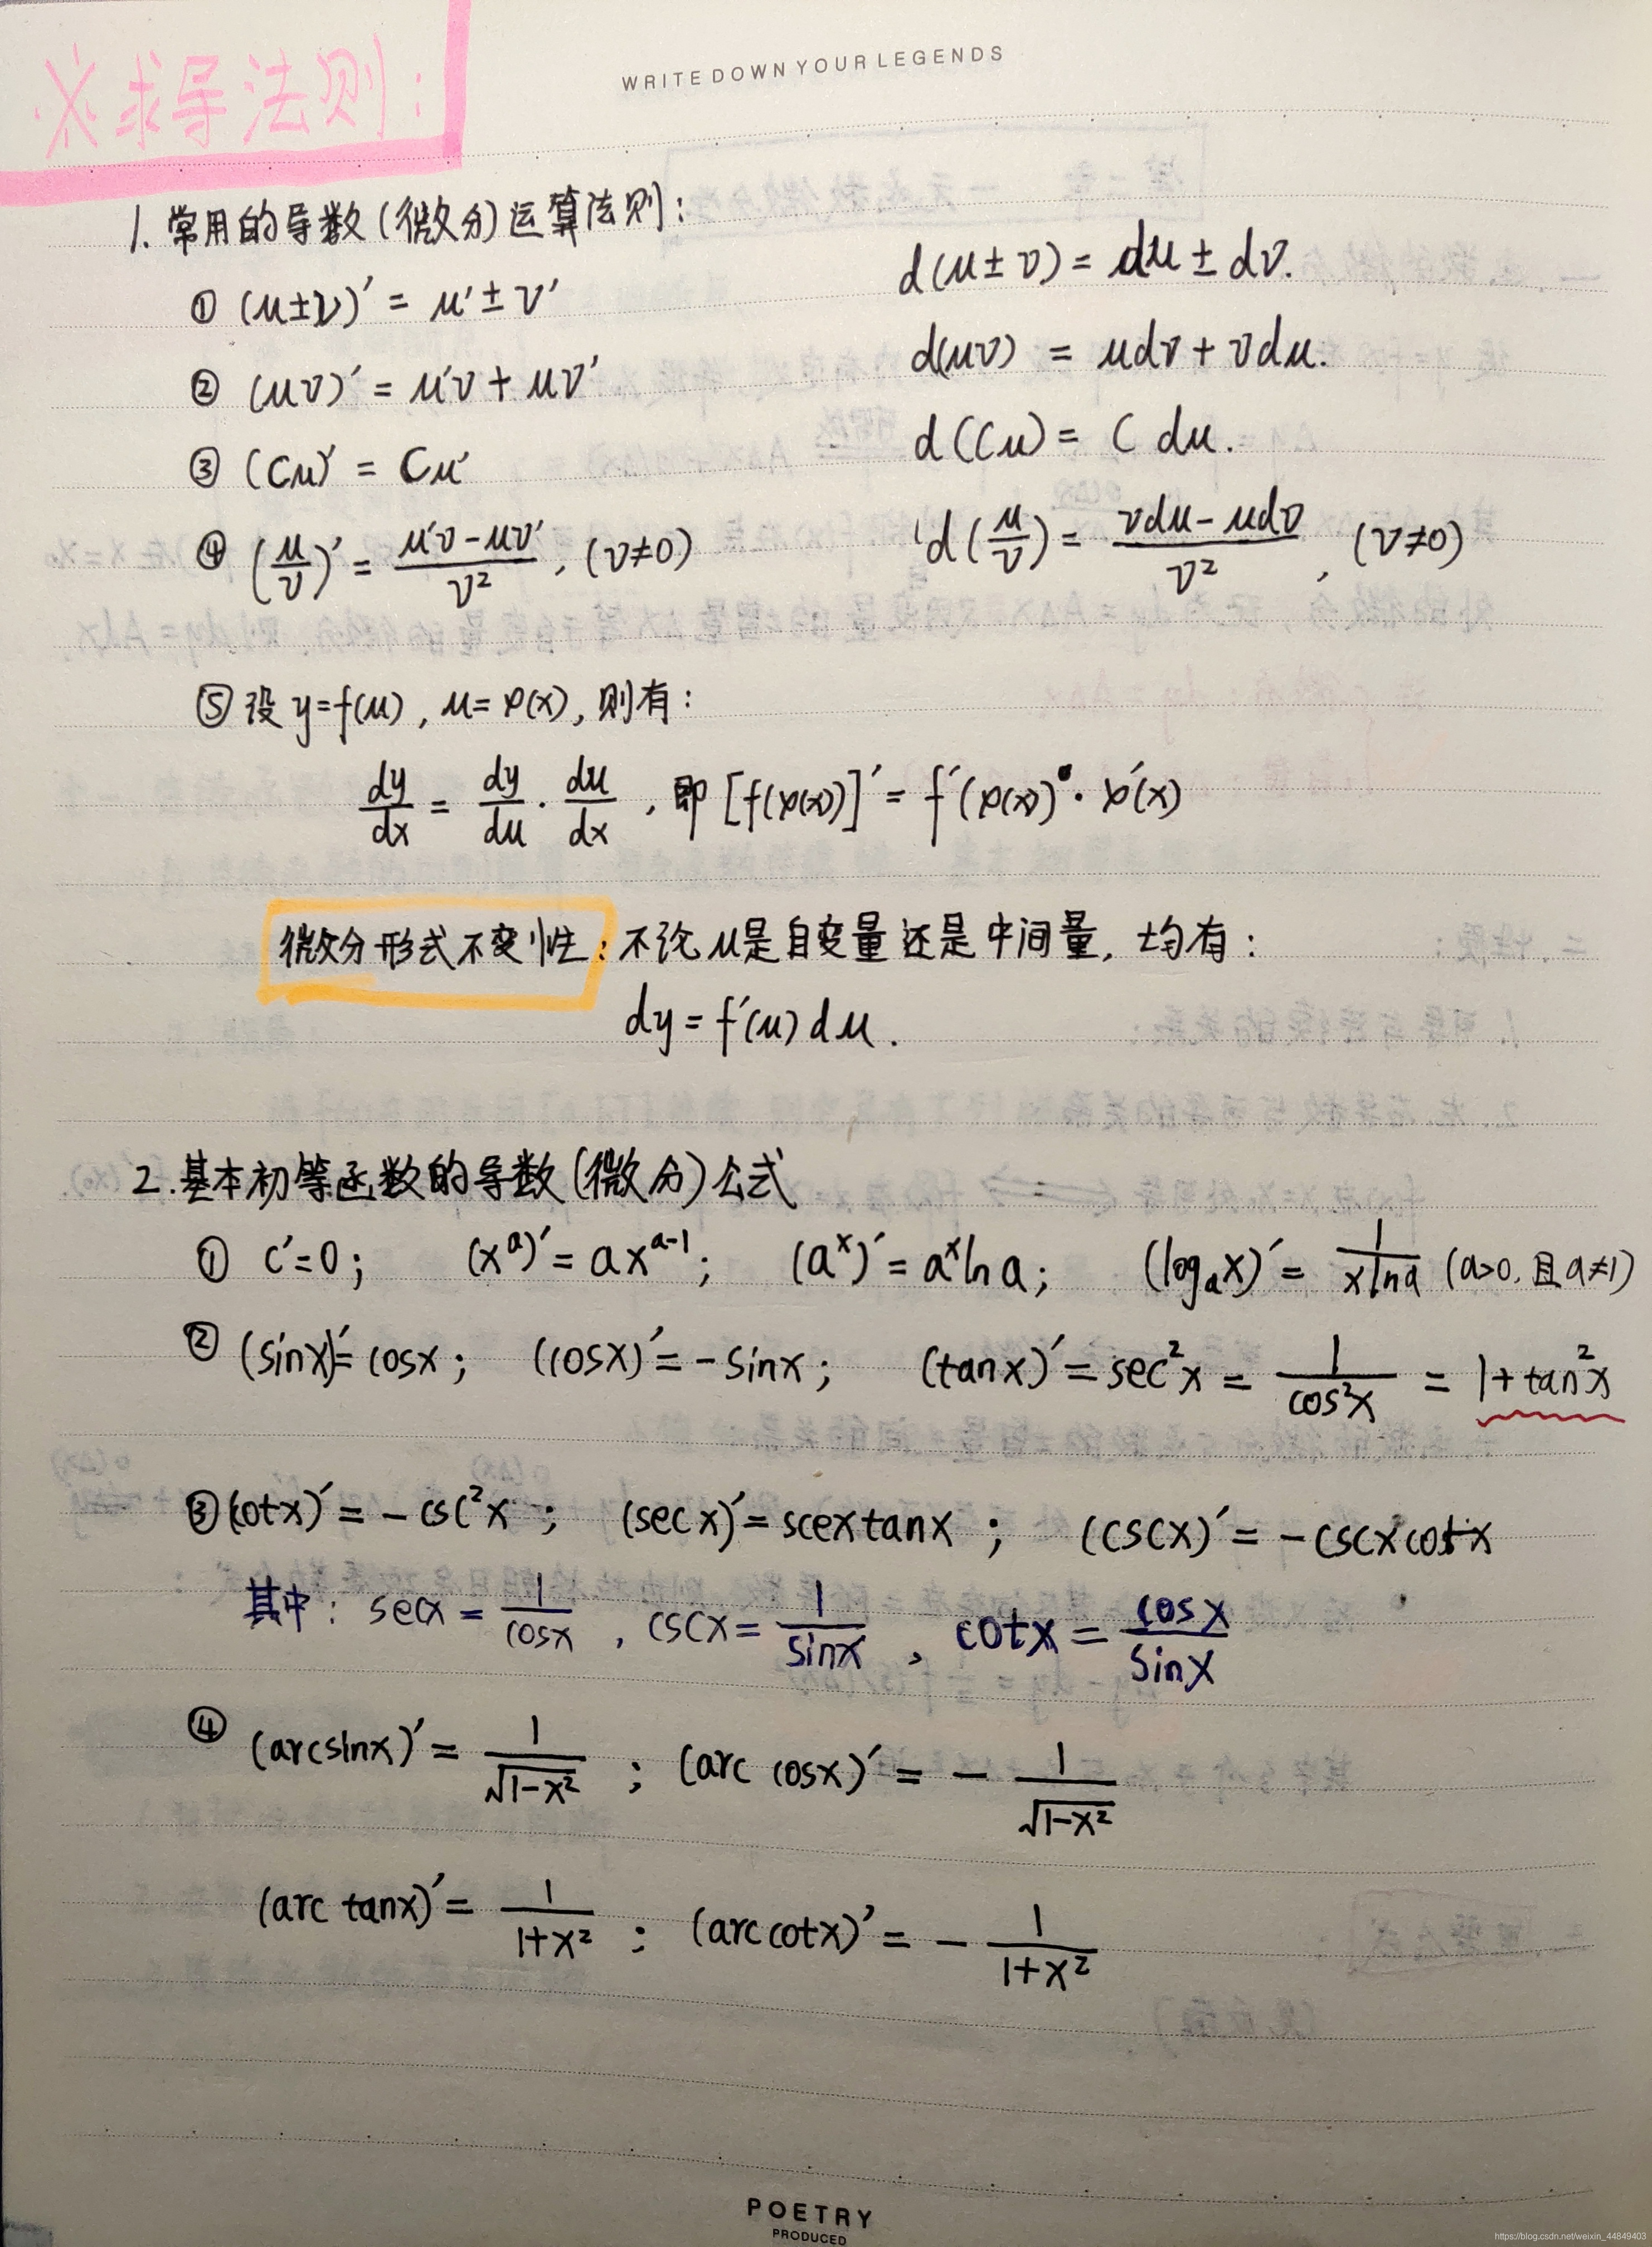 WRITE DOWN YOUR LEGENDS
※求导法则:
1. 常用的导数(微分)运算法则:
① (μ±ν)′ = μ′±ν′    d(μ±ν) = dμ ± dν.
② (μν)′ = μ′ν + μν′    d(μν) = μdν + νdμ.
③ (Cμ)′ = Cμ′    d(Cμ) = C dμ.
④ (μ/ν)′ = (μ′ν-μν′)/ν², (ν≠0)    d(μ/ν) = (νdμ-μdν)/ν², (ν≠0)
⑤ 设 y=f(μ), μ=φ(x), 则有:
dy/dx = dy/dμ · dμ/dx, 即 [f(φ(x))]′ = f′(φ(x)) · φ′(x)
微分形式不变性: 不论μ是自变量还是中间量, 均有:
dy = f′(μ)dμ.
2. 基本初等函数的导数(微分)公式
① C′=0; (x^a)′ = ax^(a-1); (a^x)′ = a^x ln a; (log_a x)′ = 1/(x ln a) (a>0, 且a≠1)
② (sinx)′ = cosx; (cosx)′ = -sinx; (tanx)′ = sec²x = 1/cos²x = 1+tan²x
③ (cotx)′ = -csc²x; (secx)′ = scextanx; (cscx)′ = -cscxcotx
其中: secx = 1/cosx, cscx = 1/sinx, cotx = cosx/sinx
④ (arcsinx)′ = 1/√(1-x²); (arc cosx)′ = - 1/√(1-x²)
(arc tanx)′ = 1/(1+x²); (arc cotx)′ = - 1/(1+x²)
POETRY
PRODUCED
https://blog.csdn.net/weixin_44849403